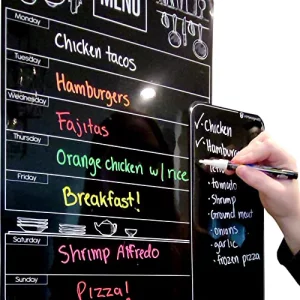 MENU
Monday
Chicken tacos
Tuesday
Hamburgers
Wednesday
Fajitas
Thursday
Orange chicken w/rice
Friday
Breakfast!
Saturday
Shrimp Alfredo
Sunday
Pizza!
✓Chicken
✓Hamburger
• tomato
• Shrimp
• Ground meat
• onions
• garlic
• frozen pizza